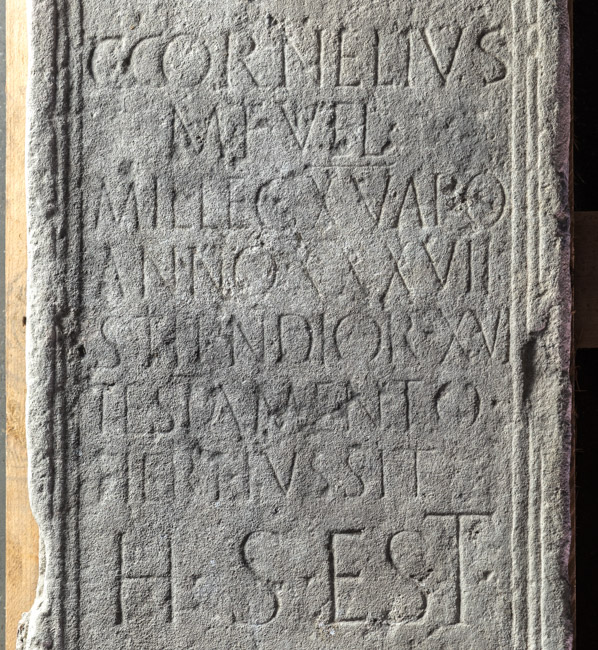 C CORNELIVS
M F VEL
MILLEG XV APO
ANNO XXXXVII
STIPENDIOR XVI
TESTAMENTO
FIERI IVSSIT
H S EST